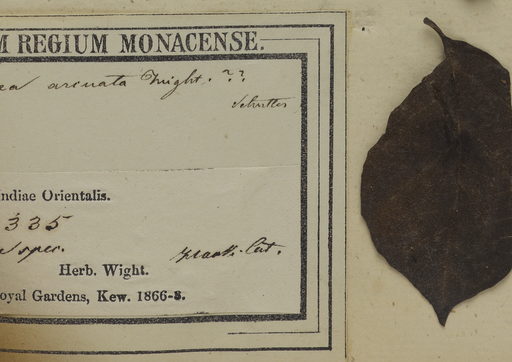 M REGIUM MONACENSE.
ea arcuata Wight. ??
Indiae Orientalis.
335
spec.
Herb. Wight.
oyal Gardens, Kew. 1866-8.